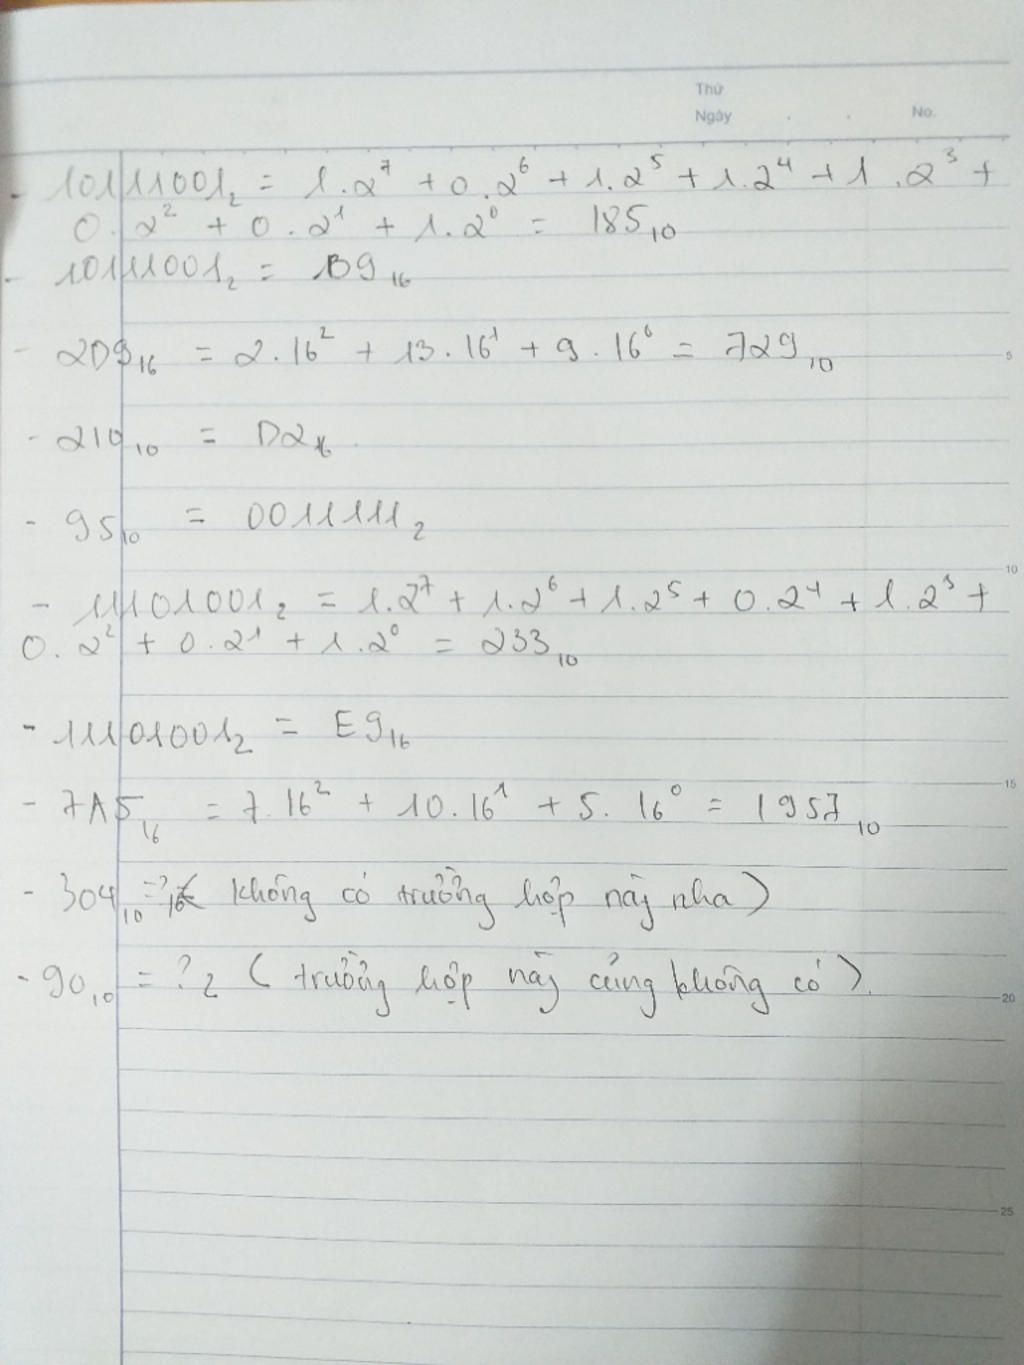 Thứ
Ngày . . No.
- 10111001₂ = 1.2⁷ + 0.2⁶ + 1.2⁵ + 1.2⁴ + 1.2³ +
0.2² + 0.2¹ + 1.2⁰ = 185₁₀
- 10111001₂ = B9₁₆
- 2D9₁₆ = 2.16² + 13.16¹ + 9.16⁰ = 729₁₀
5
- 210₁₀ = D2₁₆
- 95₁₀ = 0011111₂
10
- 11101001₂ = 1.2⁷ + 1.2⁶ + 1.2⁵ + 0.2⁴ + 1.2³ +
0.2² + 0.2¹ + 1.2⁰ = 233₁₀
- 11101001₂ = E9₁₆
15
- 7A5₁₆ = 7.16² + 10.16¹ + 5.16⁰ = 1957₁₀
- 304₁₀ = ?₁₆ ( không có trường hợp này nha )
- 90₁₀ = ?₂ ( trường hợp này cũng không có ).
20
25